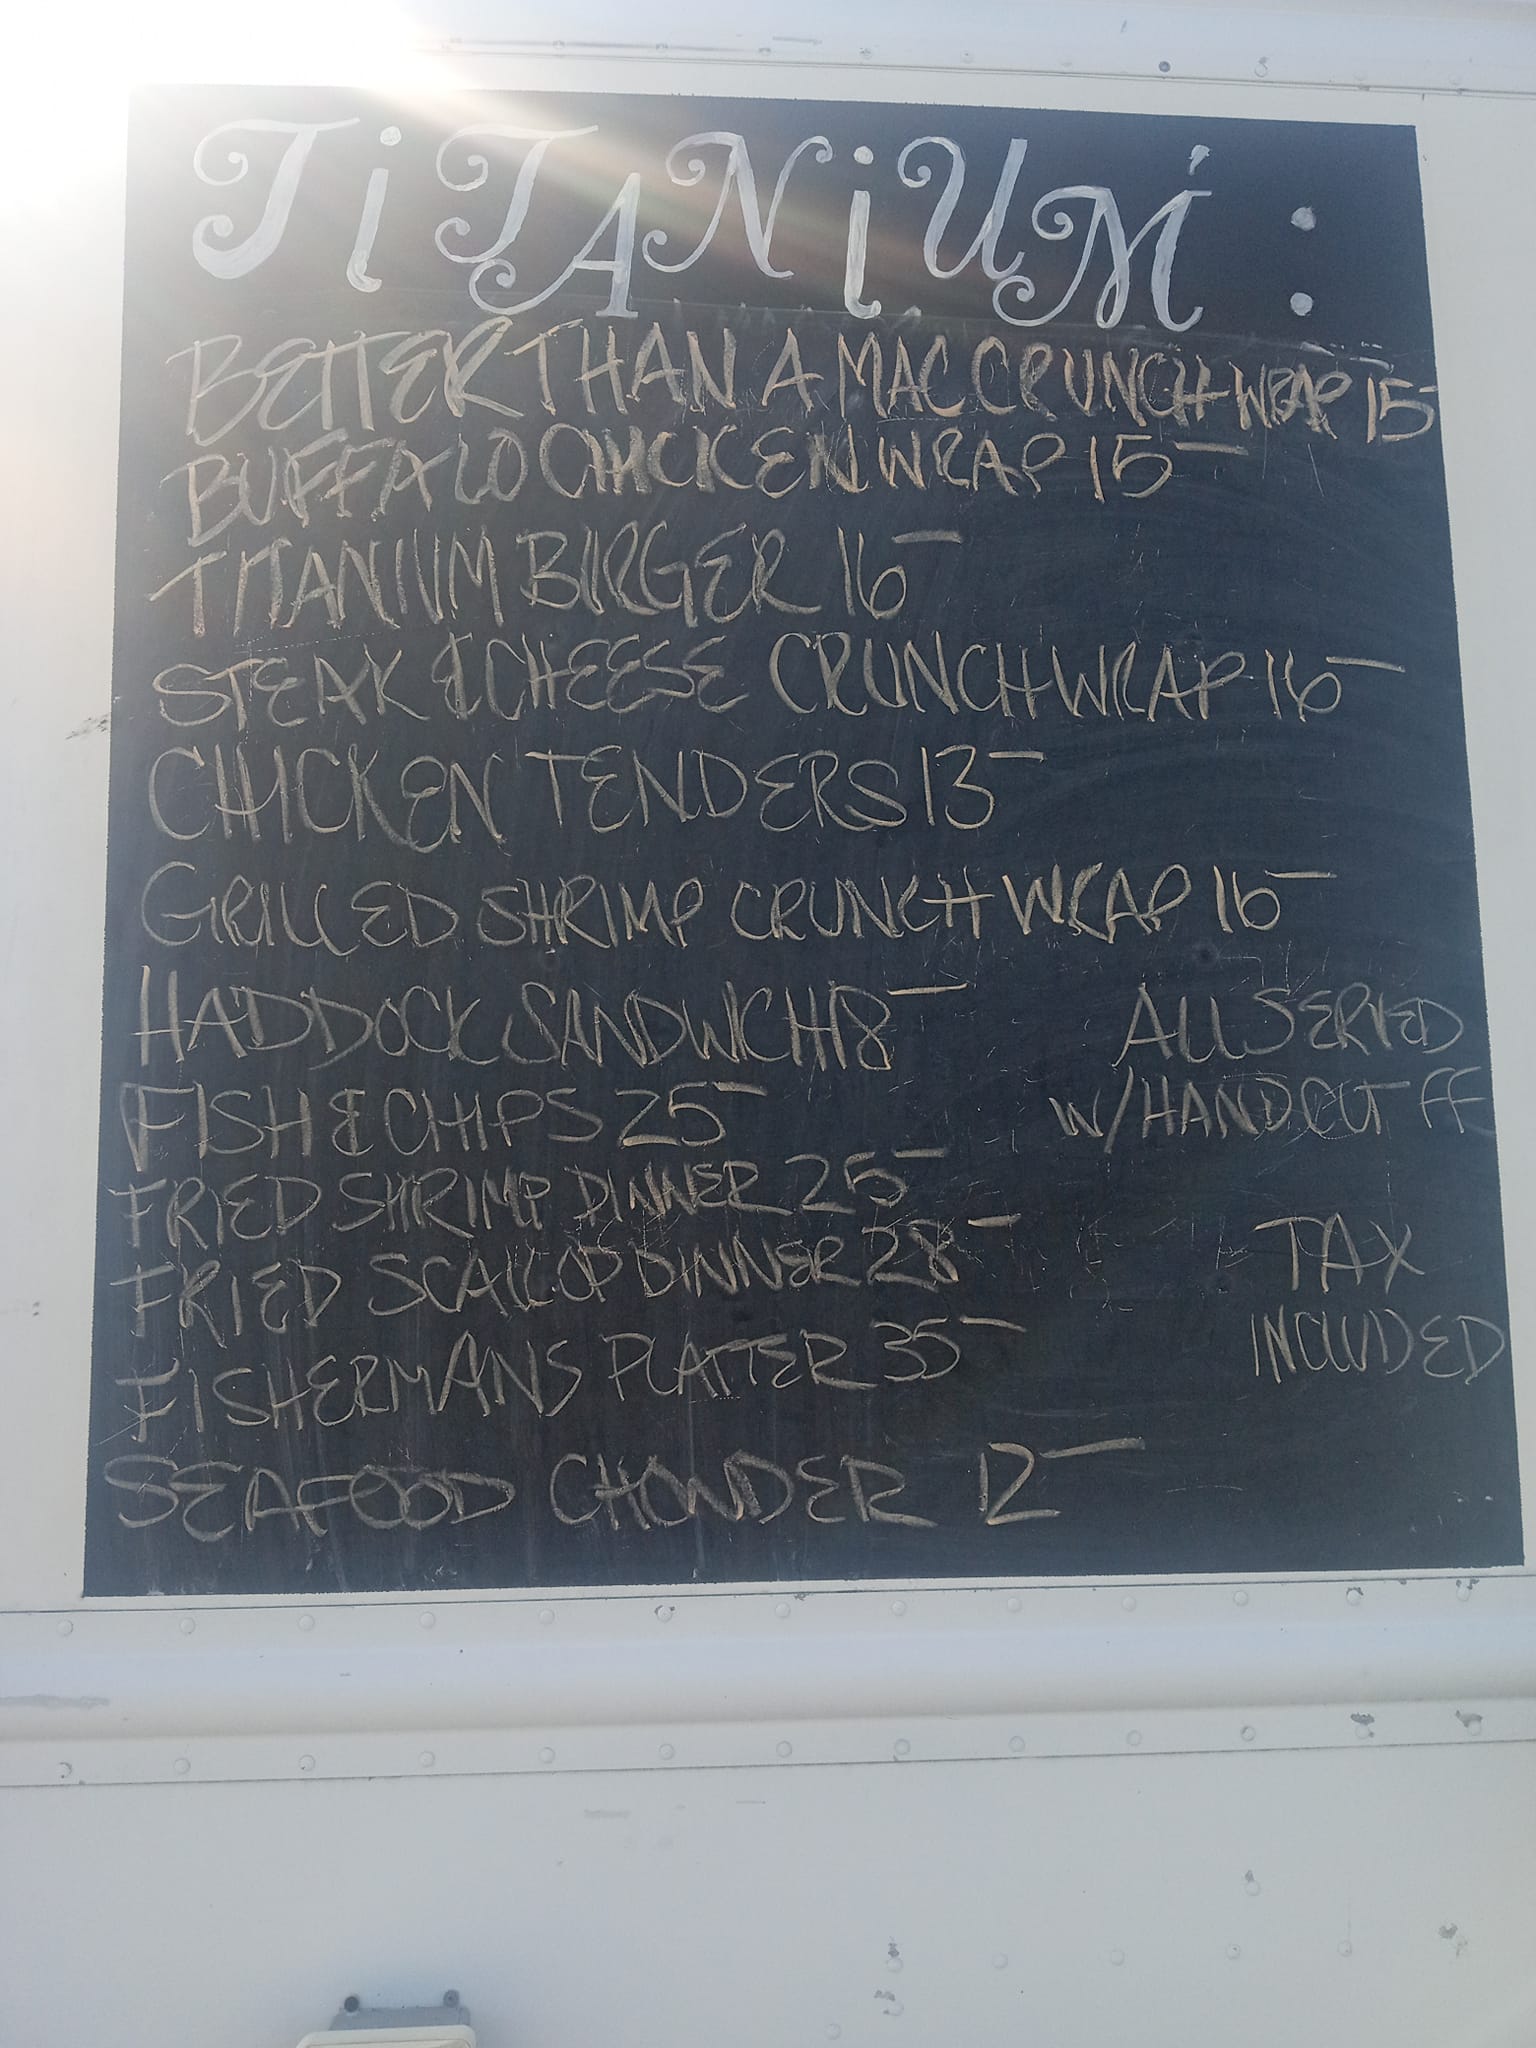 TiTANiUM:
BETTER THAN A MAC CRUNCHWRAP 15-
BUFFALO CHICKEN WRAP 15-
TITANIUM BURGER 16-
STEAK & CHEESE CRUNCHWRAP 16-
CHICKEN TENDERS 13-
GRILLED SHRIMP CRUNCH WRAP 16-
HADDOCK SANDWICH 18-
FISH & CHIPS 25-
FRIED SHRIMP DINNER 25-
FRIED SCALLOP DINNER 28-
FISHERMANS PLATTER 35-
SEAFOOD CHOWDER 12-
ALL SERVED
W/HANDCUT FF
TAX
INCLUDED